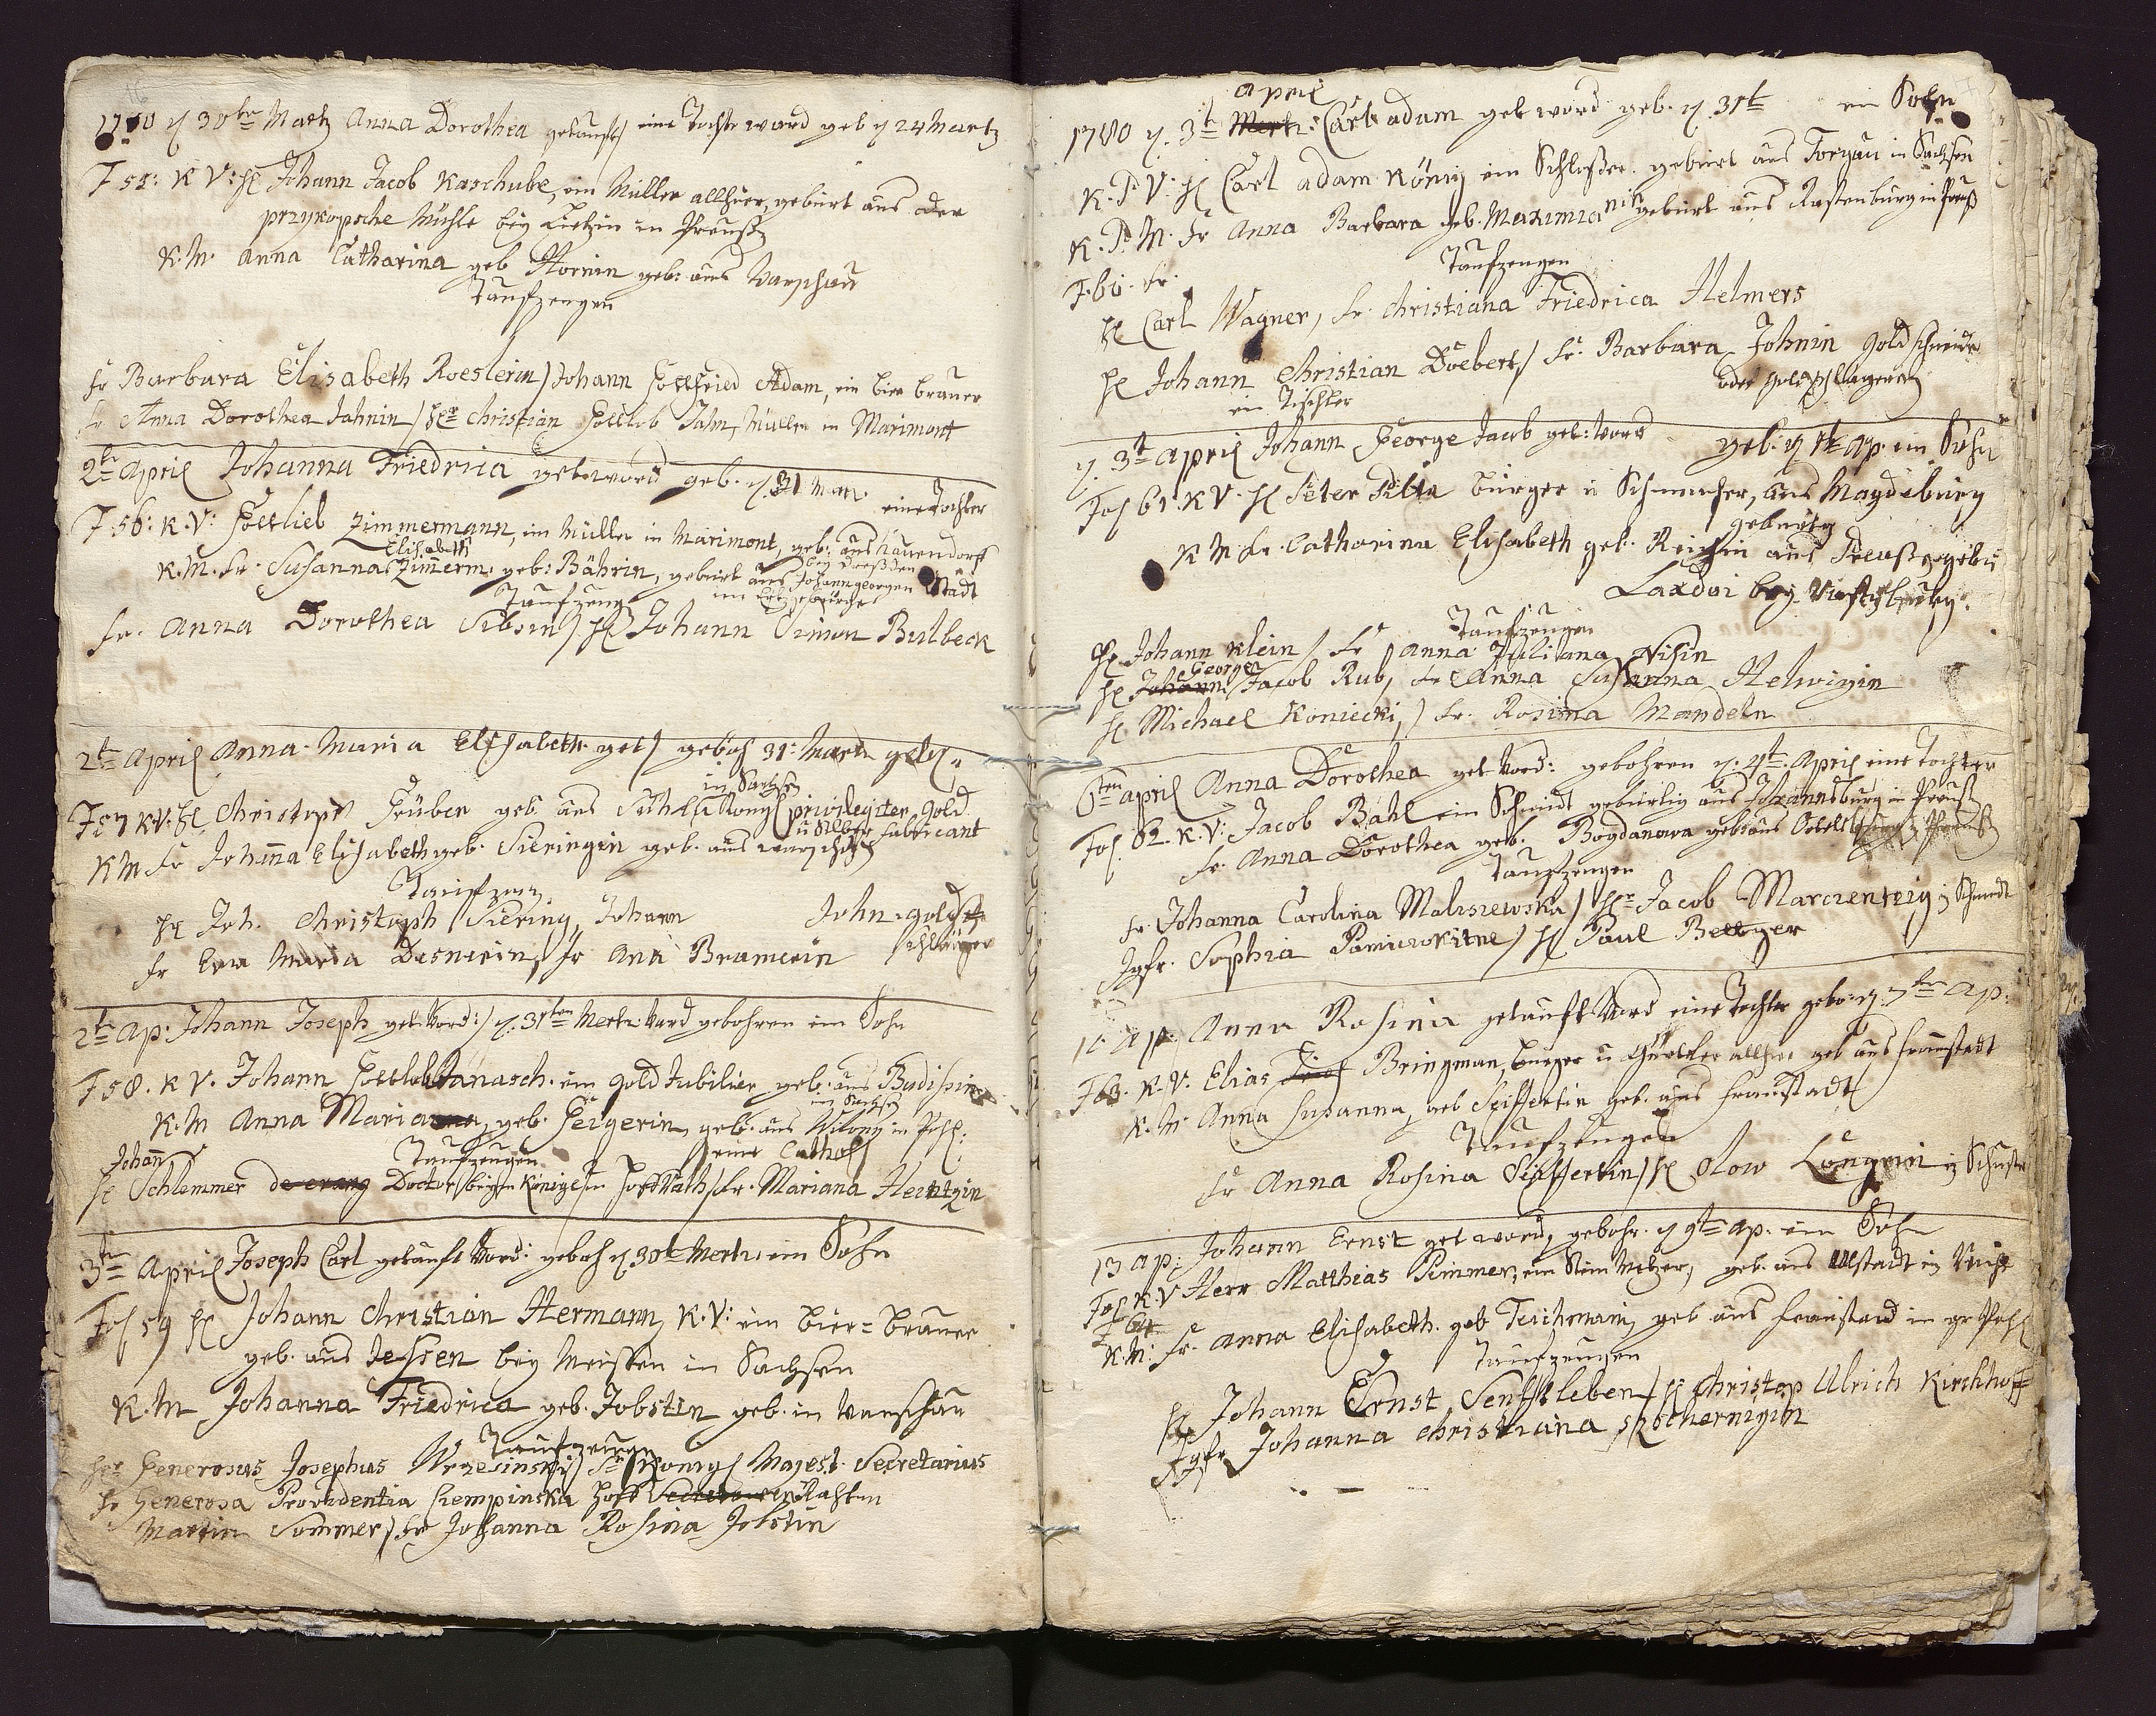 1780 d 30ten Martz Anna Dorothea getauft / eine Tochter ward geb d 24 Martz
F 55: K V: H Johann Jacob Kaschube, ein Müller allhier, gebürt aus der
przykopsche Mühle bey Lietzin in Preuß
K. M. Anna Catharina geb Hornin geb: aus Warschau
Taufzeugen
Fr Barbara Elisabeth Roeslerin / Johann Gottfried Adam, ein bier brauer
Fr Anna Dorothea Jahnin / Hr Christian Gottlob Jahn, Müller in Marimont
2te April Johanna Friedrica get word geb. d. 31 Martz
eine Tochter
F. 56: K. V: Gottlieb Zimmermann, ein Müller in Marimont, geb: aus Lauendorff
bey Dreßden
Elisabeth
K. M. Fr. Susanna Zimerm. geb: Bährin, gebürt aus Johanngeorgen Stadt
im Ertzgebürge
Taufzeug
Fr. Anna Dorothea Sibsin / H Johann Simon Bulbeck
2te April Anna Maria Elisabeth get / geboh 31: Martz
in Sachsen
F 57 K V: H Christoph Grüber geb aus Suhl Königl privilegirter Gold
u Silber fabbricant
K M Fr Johana Elisabeth geb. Sieringin geb. aus warschau
Taufzeug
H Joh. Christoph Siering, Johann John. gold
schläger
Fr Eva Maria Desnerin, Fr Ana Bramerin
2te Ap: Johann Joseph get. Word: / d. 31ten Mertz Ward gebohren ein Sohn
F 58. K V. Johann Gottlob Janasch. ein gold Jubilier geb. aus Budissin
in Sachsen
K. M Anna Maria, geb. Geigerin, geb. aus in Pohl:
eine Cathol
Johann
Taufzeugen
H Schlemmer Doctor beym Könige in Hoffrath / Fr. Mariana Hentzgin
3te April Joseph Carl getauft Word: geboh d 30t Mertz ein Sohn
Fol 59 H Johann Christian Hermann, K. V: ein Bier-Brauer
geb. aus Jessen bey Meissen in Sachsen
K. M Johanna Friedrica geb. Jobstin geb. in Warschau
Taufzeugen
Hr Generosus Josephus Wrzesinski / Sr Königl Majest. Secretarius
Fr Generosa Providentia Ciempinska Hoff Räthin
Martin Sommer / Fr Johanna Rosina Jobstin
April
1780 d. 3t Mertz: Carl adam get word geb. d. 31t ein Sohn
K. P V: H Carl adam König ein Schloßer. gebürt aus Torgau in Sachsen
K. P. M. Fr Anna Barbara geb. Maximianin gebürt aus Rastenburg in Preuß
Taufzeugen
F. 60. Fr.
H Carl Wagner, Fr. Christiana Friedrica Helmers
H Johann Christian Doebert, / Fr. Barbara Johnin Gold schneider
oder goldschlagerin
ein Tischler
d. 3t April Johann George Jacob get: Word geb: d 1t ap. ein Sohn
Fol 61. K V. H Peter Pilta bürger u Schumacher, aus Magdeburg
gebürtig
K M Fr. Catharina Elisabeth geb. Reichin aus Preussen gebü
Laxdoi bey
Taufzeugen
H Johann Klein / Fr Anna Juliana Nisin
George
H Johann Jacob Rub, Fr Anna Susanna Helwigin
H Michael Koniecki, / Fr. Rosina Mandeln
6ten april Anna Dorothea get Word: gebohren d. 4t. April eine Tochter
Fol. 62. K. V: Jacob Bahl ein Schmidt gebürtig aus Johannsburg in Preuß
Fr. Anna Dorothea geb. Bogdanowa geb: aus Ortels
Taufzeugen
Fr. Johanna Carolina Maliszewska / Hr Jacob Marczentzig ein Schmidt
Jgfr. Sophia / H Paul Bettger
10 Ap. Anna Rosina getauft Word eine Tochter gebo: d. 7ten Ap:
F 63. K. V. Elias Bringman, burger u Gürtler allhier geb aus Fraustadt
K. M. Anna Susanna geb Seiffertin geb. aus Fraustadt
Taufzeugen
Fr Anna Rosina Seiffertin / H Olow Lüngrin ein Schuster
13 ap: Johann Ernst get word, gebohr. d 9te ap. ein Sohn
Fol K. V Herr Matthias Pimmer, ein Stein Metzer, geb. aus
F 64
K. M: Fr. Anna Elisabeth. geb Teichmanin geb aus Fraustadt in gr Pohl
Taufzeugen
H Johann Ernst Senfftleben / H Christop Ulrich Kirchhoff
Jgfr Johanna Christiana